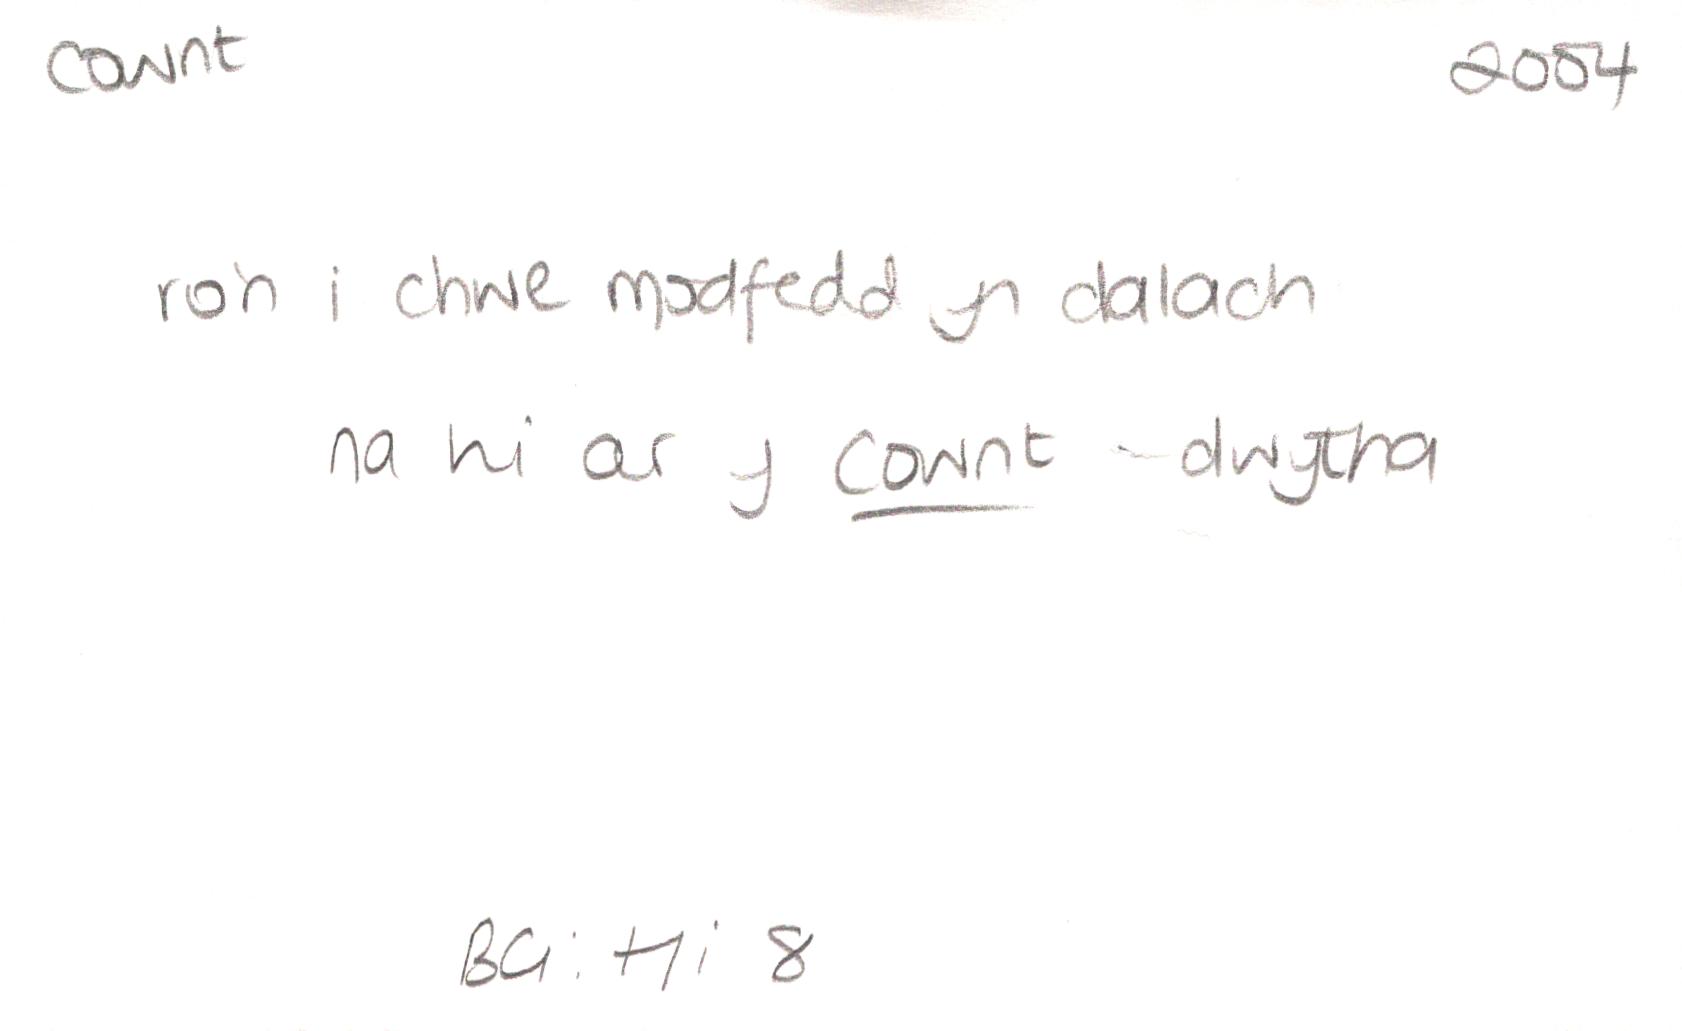 cownt 2004
ro'n i chwe modfedd yn dalach
na hi ar y cownt - dwytha
BG: Hi 8